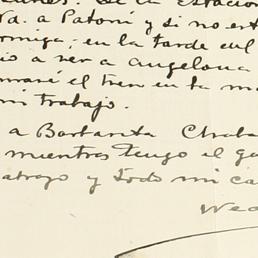 de la estacion
Ud. a Patoni y si no est
ormiga; en la tarde del
io a ver a Angelona
maré el tren en la ma
mi trabajo.
a Bartanita Chaba
mientras tengo el gu
atrazo y todo mi ca